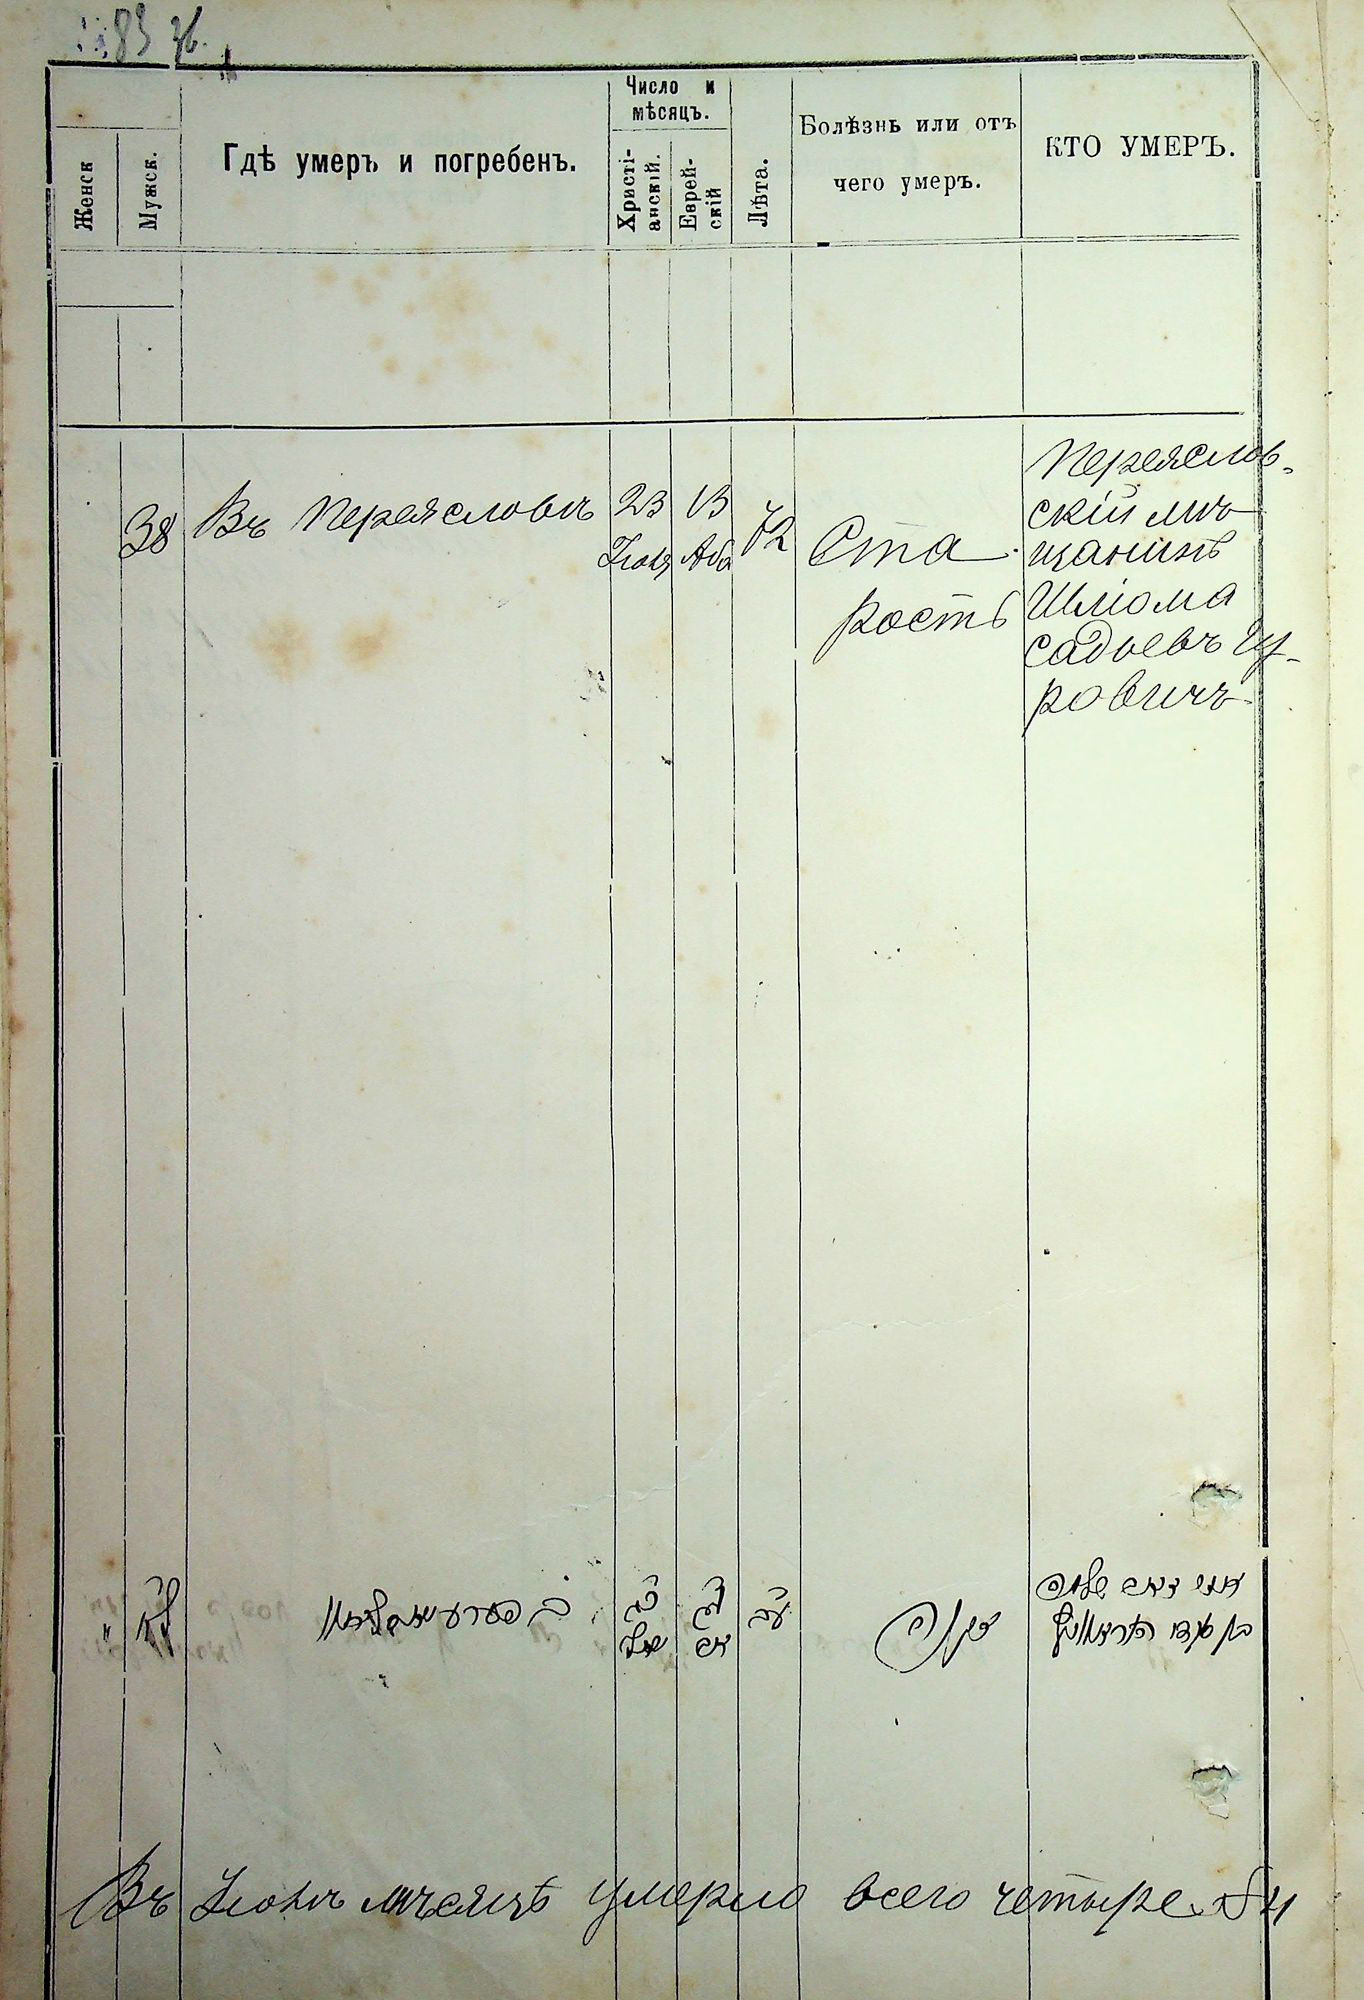 83 зв.
Женск
Мужск.
Гдѣ умеръ и погребенъ.
Число и
мѣсяцъ.
Христі-
анскій.
Еврей-
скій
Лѣта.
Болѣзнь или отъ
чего умеръ.
КТО УМЕРЪ.
38
Въ Переясловѣ
23
Іюля
13
Аба
72
Ста
рость
Переяслов-
скій мѣ
щанинъ
Шліома
Садьевъ Гу-
ровичъ
"
לח
יג
אב
עב
זקנה
Въ Іюлѣ мѣсяцѣ умерло всего четыре